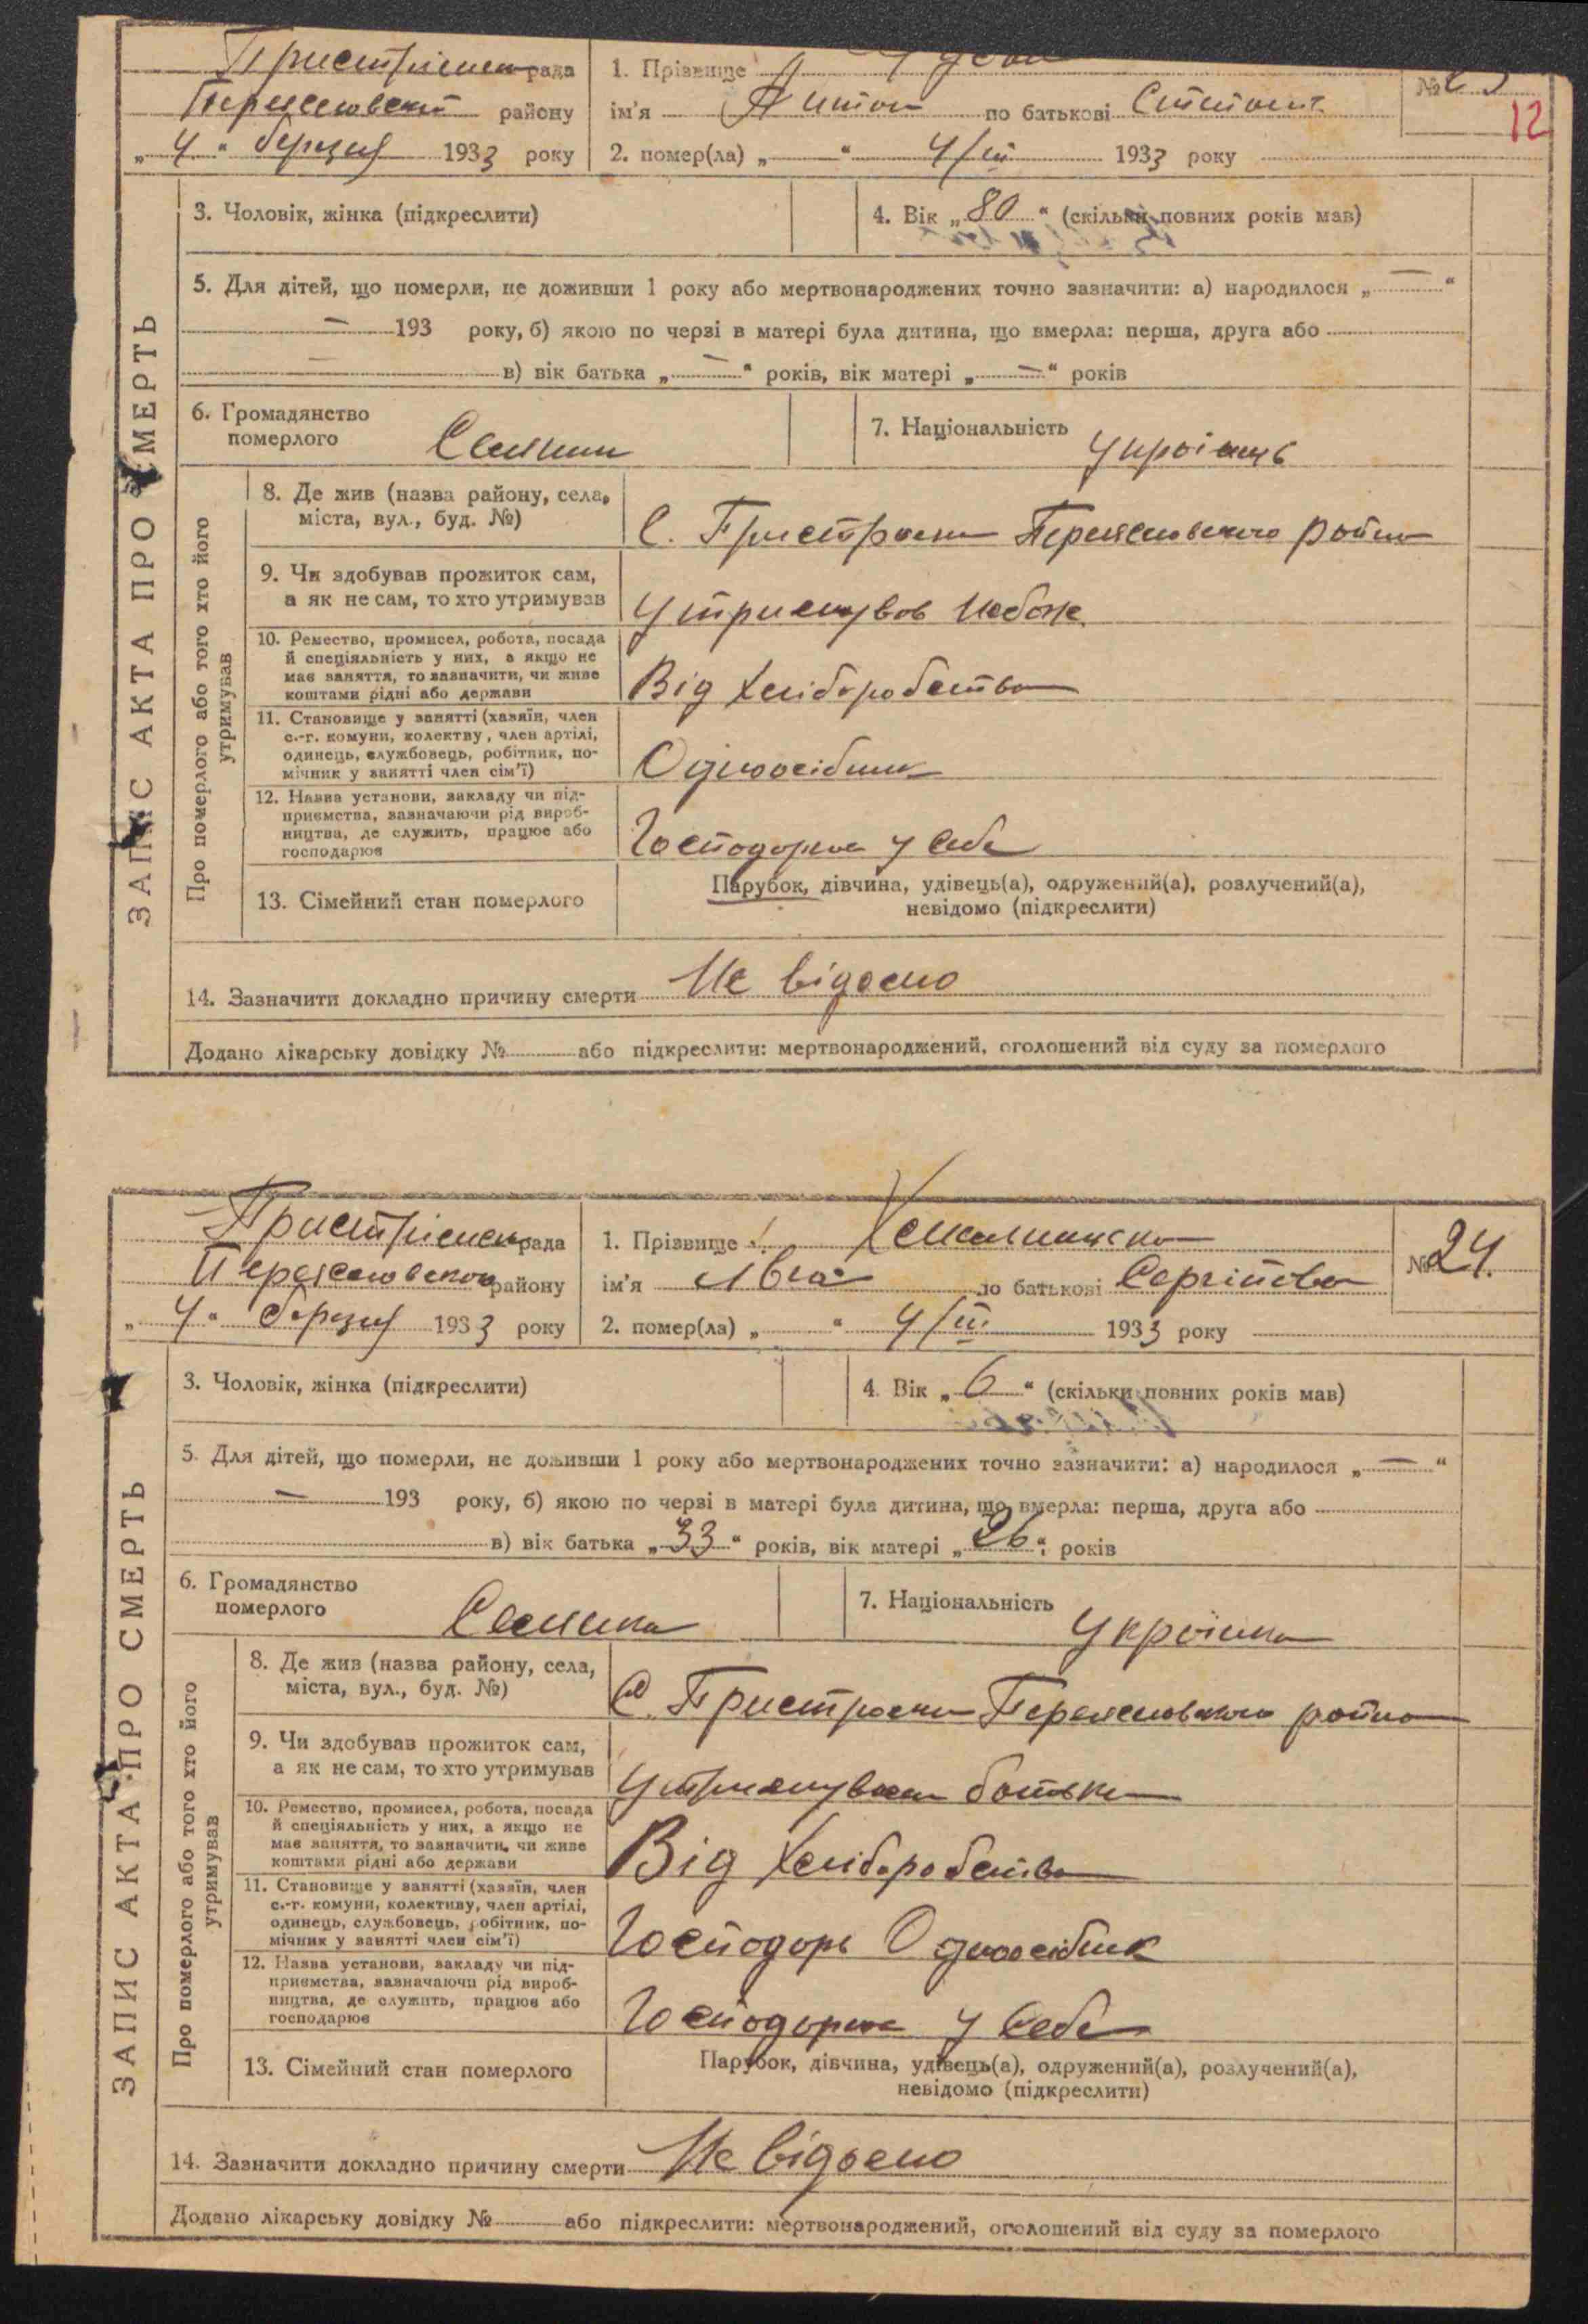 Пристрімська рада
1. Прізвище
№ 23
12
Переяславський району
ім'я Антон по батькові Степанов.
„ 4 “ березня 1933 року
2. помер(ла) „ — “ 4/III 1933 року
ЗАПИС АКТА ПРО СМЕРТЬ
3. Чоловік, жінка (підкреслити)
4. Вік „ 80 “ (скільки повних років мав)
5. Для дітей, що померли, не доживши 1 року або мертвонароджених точно зазначити: а) народилося „ — “
— 193 року, б) якою по черзі в матері була дитина, що вмерла: перша, друга або
— в) вік батька „ — “ років, вік матері „ — “ років
6. Громадянство
померлого Селянин
7. Національність Украінць
Про померлого або того хто його
утримував
8. Де жив (назва району, села,
міста, вул., буд. №)
С. Пристроми Переяславського район
9. Чи здобував прожиток сам,
а як не сам, то хто утримував
Утримував небож
10. Ремество, промисел, робота, посада
й спеціяльність у них, а якщо не
має заняття, то зазначити, чи живе
коштами рідні або держави
Від хліборобства
11. Становище у занятті (хазяїн, член
с.-г. комуни, колектву, член артілі,
одинець, службовець, робітник, по-
мічник у занятті член сім'ї)
Одноосібник
12. Назва установи, закладу чи під-
приємства, зазначаючи рід вироб-
ництва, де служить, працює або
господарює
Господарює у себе
13. Сімейний стан померлого
Парубок, дівчина, удівець(а), одружений(а), розлучений(а),
невідомо (підкреслити)
14. Зазначити докладно причину смерти Не відомо
Додано лікарську довідку № або підкреслити: мертвонароджений, оголошений від суду за померлого
Пристрімська рада
1. Прізвище
№ 24.
Переяславського району
ім'я по батькові Сергіївна
„ 4 “ березня 1933 року
2. помер(ла) „ “ 4/III 1933 року
ЗАПИС АКТА ПРО СМЕРТЬ
3. Чоловік, жінка (підкреслити)
4. Вік „ 6 “ (скільки повних років мав)
5. Для дітей, що померли, не доживши 1 року або мертвонароджених точно зазначити: а) народилося „ — “
— 193 року, б) якою по черзі в матері була дитина, що вмерла: перша, друга або
в) вік батька „ 33 “ років, вік матері „ 26 “ років
6. Громадянство
померлого Селянка
7. Національність Українка
Про померлого або того хто його
утримував
8. Де жив (назва району, села,
міста, вул., буд. №)
С. Пристроми Переяславського район
9. Чи здобував прожиток сам,
а як не сам, то хто утримував
Утримували батьки
10. Ремество, промисел, робота, посада
й спеціяльність у них, а якщо не
має заняття, то зазначити, чи живе
коштами рідні або держави
Від хліборобства
11. Становище у занятті (хазяїн, член
с.-г. комуни, колективу, член артілі,
одинець, службовець, робітник, по-
мічник у занятті член сім'ї)
Господарь Одноосібник
12. Назва установи, закладу чи під-
приємства, зазначаючи рід вироб-
ництва, де служить, працює або
господарює
Господарює у себе
13. Сімейний стан померлого
Парубок, дівчина, удівець(а), одружений(а), розлучений(а),
невідомо (підкреслити)
14. Зазначити докладно причину смерти Не відомо
Додано лікарську довідку № або підкреслити: мертвонароджений, оголошений від суду за померлого